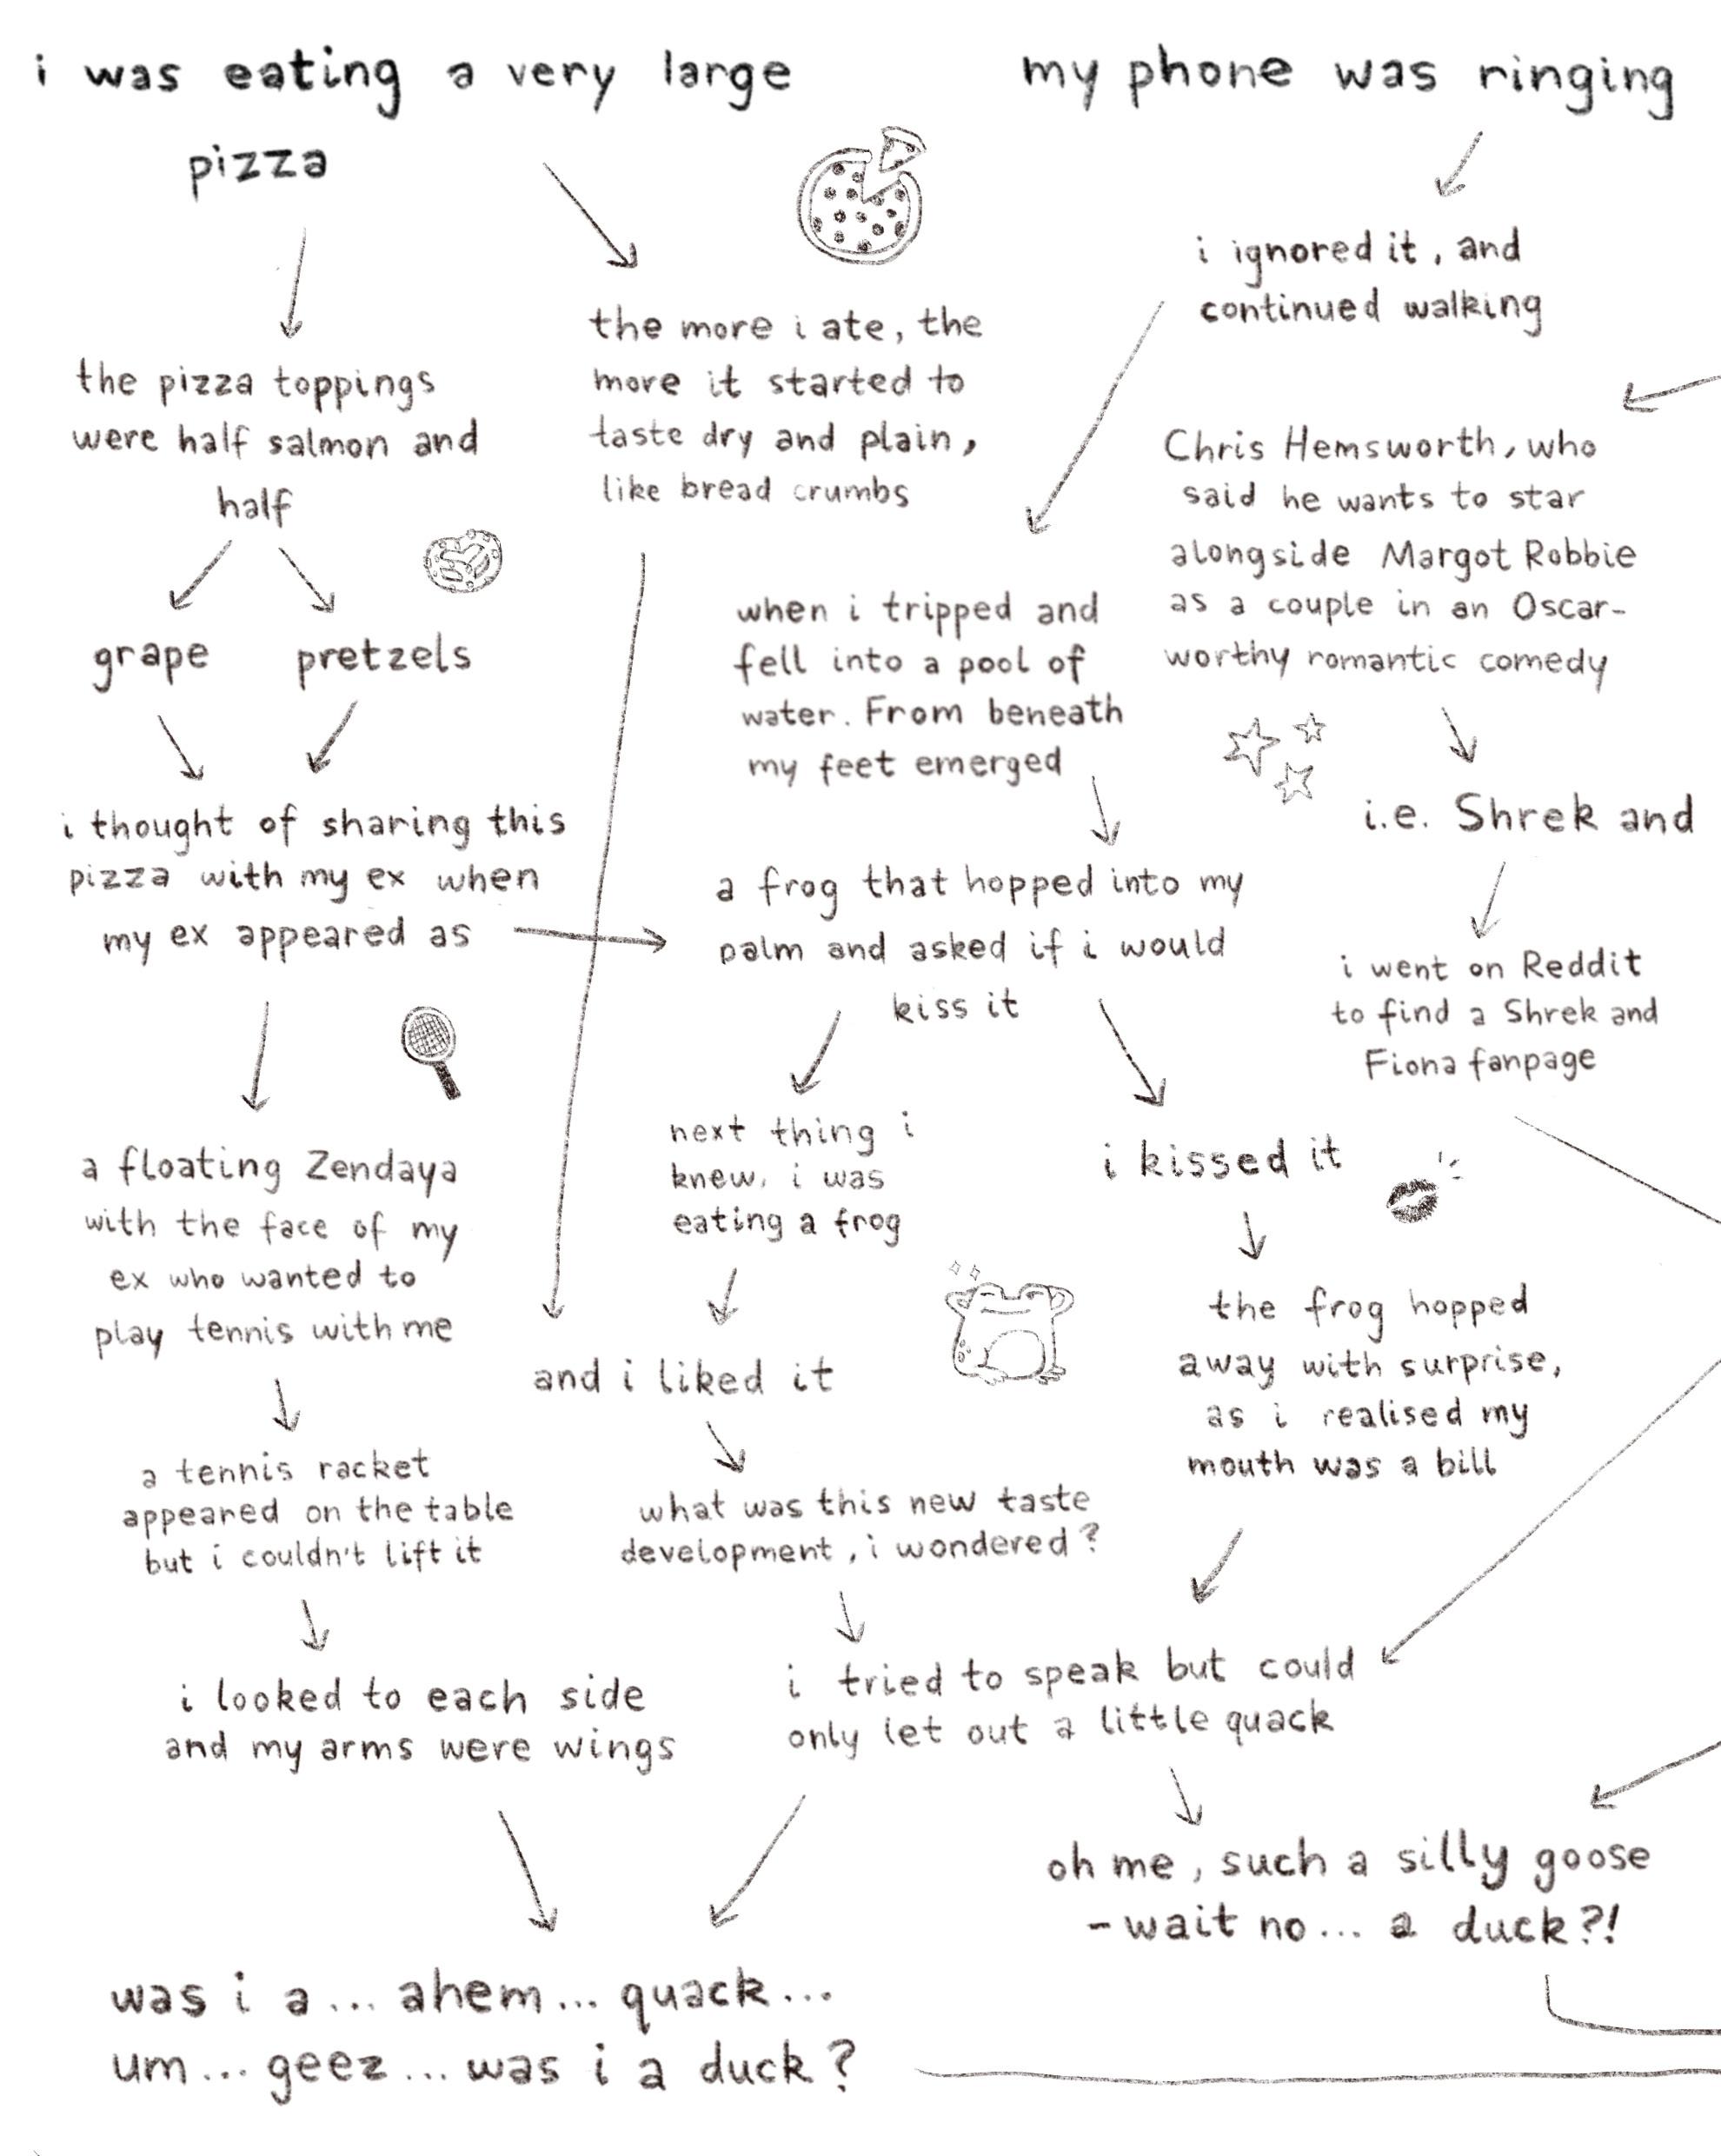 i was eating a very large
pizza
my phone was ringing
the pizza toppings
were half salmon and
half
the more i ate, the
more it started to
taste dry and plain,
like bread crumbs
i ignored it, and
continued walking
Chris Hemsworth, who
said he wants to star
alongside Margot Robbie
as a couple in an Oscar-
worthy romantic comedy
grape
pretzels
when i tripped and
fell into a pool of
water. From beneath
my feet emerged
i.e. Shrek and
i thought of sharing this
pizza with my ex when
my ex appeared as
a frog that hopped into my
palm and asked if i would
kiss it
i went on Reddit
to find a Shrek and
Fiona fanpage
a floating Zendaya
with the face of my
ex who wanted to
play tennis with me
next thing i
knew, i was
eating a frog
i kissed it
and i liked it
the frog hopped
away with surprise,
as i realised my
mouth was a bill
a tennis racket
appeared on the table
but i couldn't lift it
what was this new taste
development, i wondered?
i looked to each side
and my arms were wings
i tried to speak but could
only let out a little quack
oh me, such a silly goose
- wait no... a duck?!
was i a... ahem... quack...
um... geez... was i a duck?